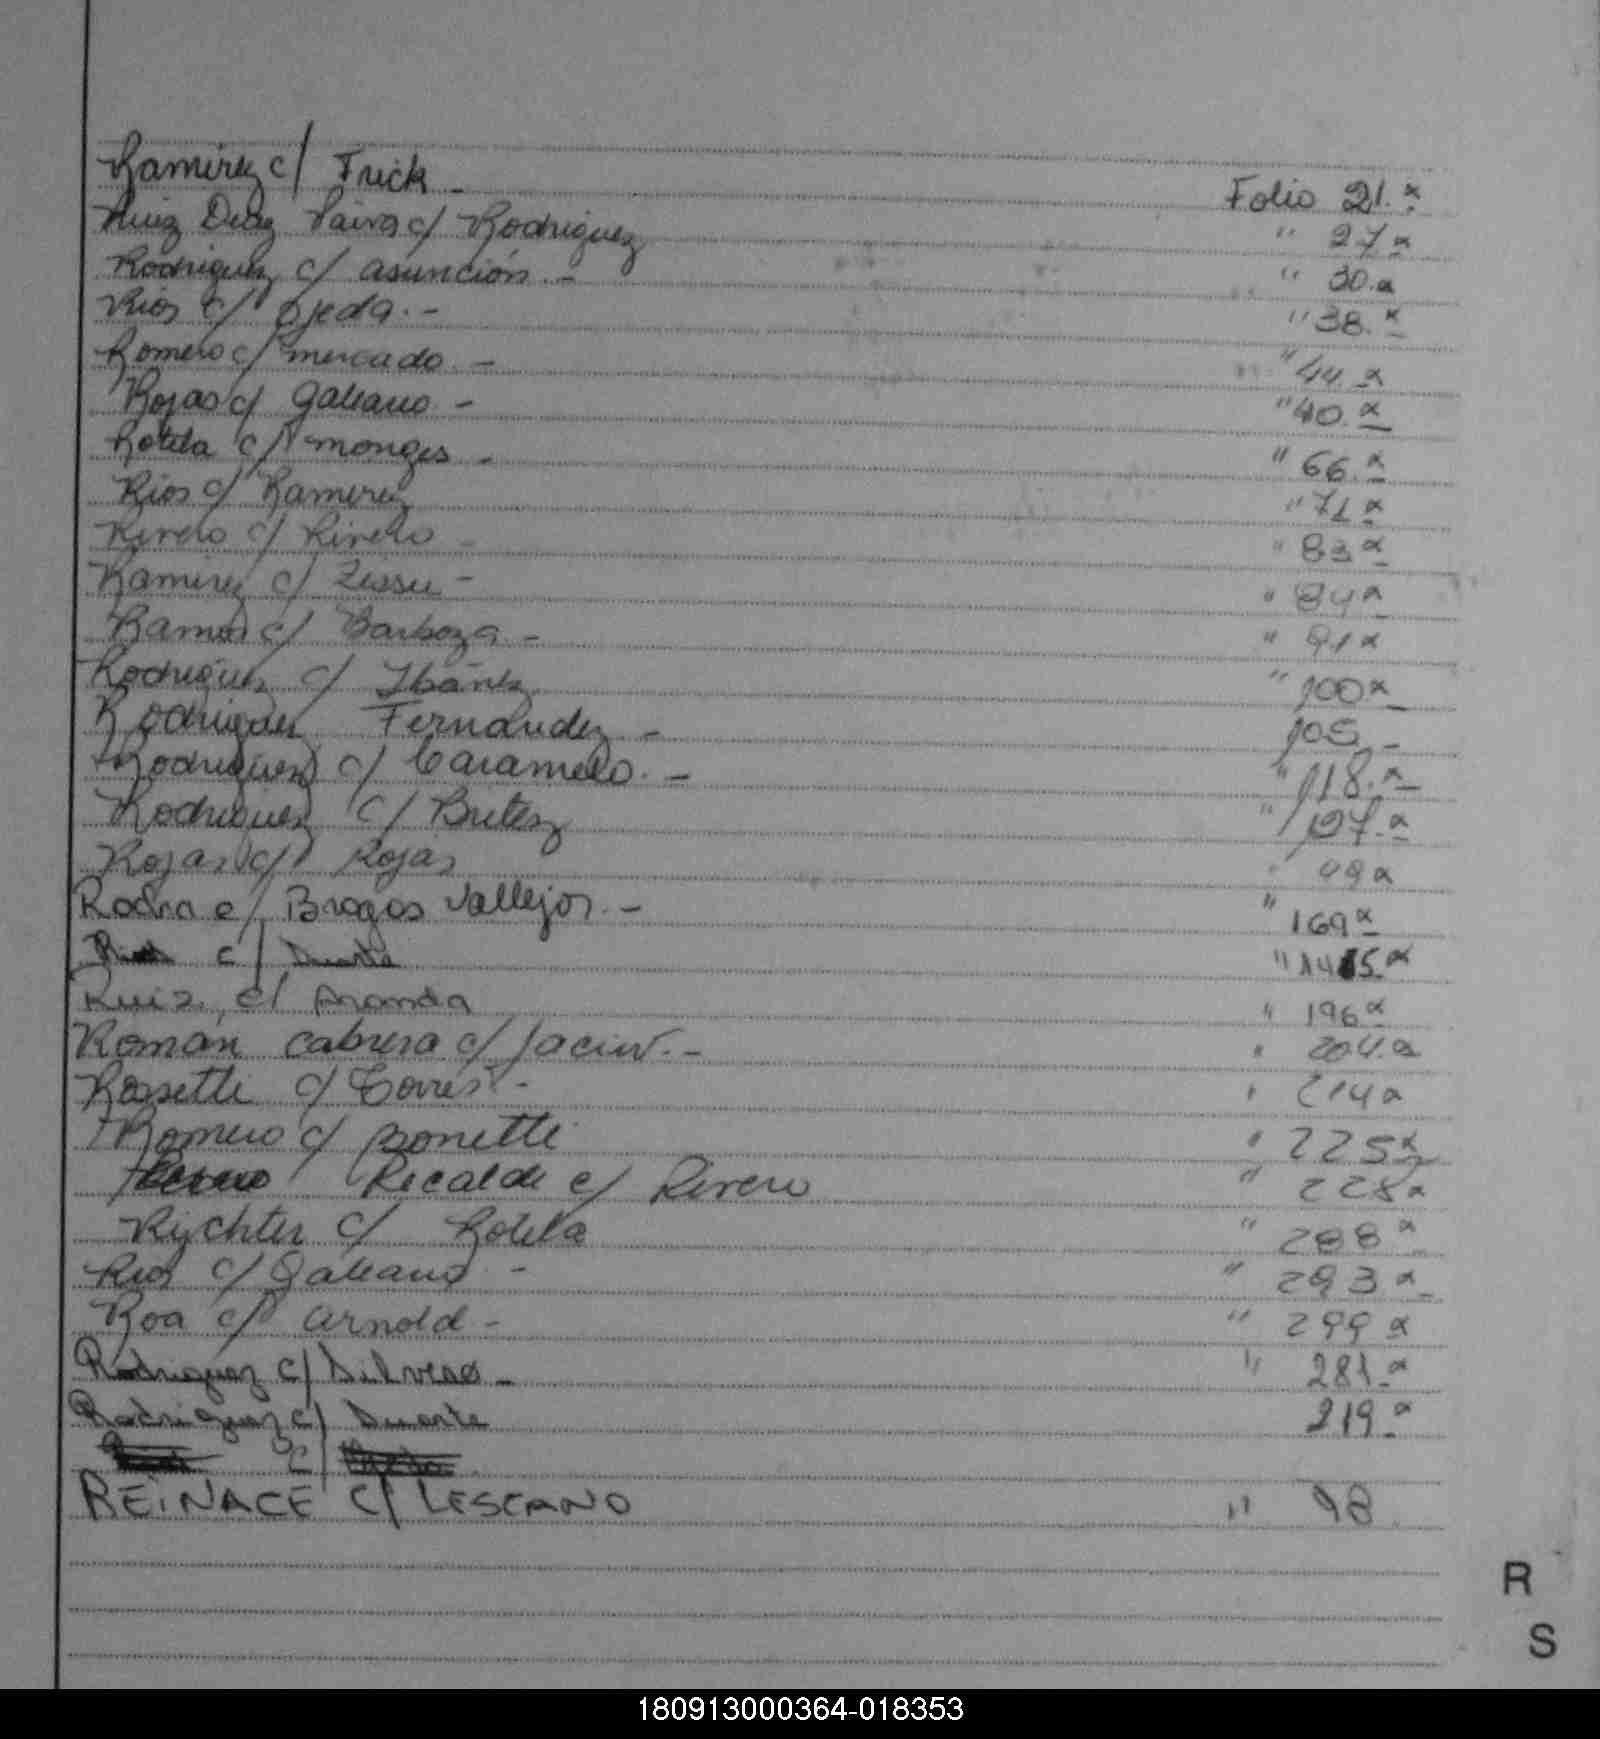 Ramirez c/ Frick - Folio 21. x
Ruiz Diaz Paiva c/ Rodriguez " 27 x
Rodriguez c/ asunción. - " 30. x
Rios c/ Ojeda. - " 38. x
Romero c/ mercado. - " 44. x
Rojas c/ galeano. - " 40. x
Rotela c/ monges - " 66. x
Rios c/ Ramirez " 71 x
Rivero c/ Rivero - " 83 x
Ramirez c/ Zissu - " 84 x
Ramos c/ Barboza - " 91 x
Rodriguez c/ Ibáñez " 100 x
Rodriguez Fernandez - 105 -
Rodriguez c/ Caramelo. - " 118. x
Rodriguez c/ Britez " 127. x
Rojas c/ Rojas " 49 x
Rocha c/ Brogos Vallejos. - " 169 x
c/ Duarte " x
Ruiz c/ Aranda " 196 x
Román cabrera c/ - " 204. x
Rossetti c/ Torres. - " 214 x
Romero c/ Bonetti " 225 x
Ricalde c/ Rivero " 228 x
Rychter c/ Rotela " 288 x
Rios c/ Galeano - " 293 x
Roa c/ arnold - " 299 x
Rodriguez c/ Silvero - " 281 x
Rodriguez c/ Duarte 219 x
c/
REINACE c/ LESCANO " 98
R
S
180913000364-018353